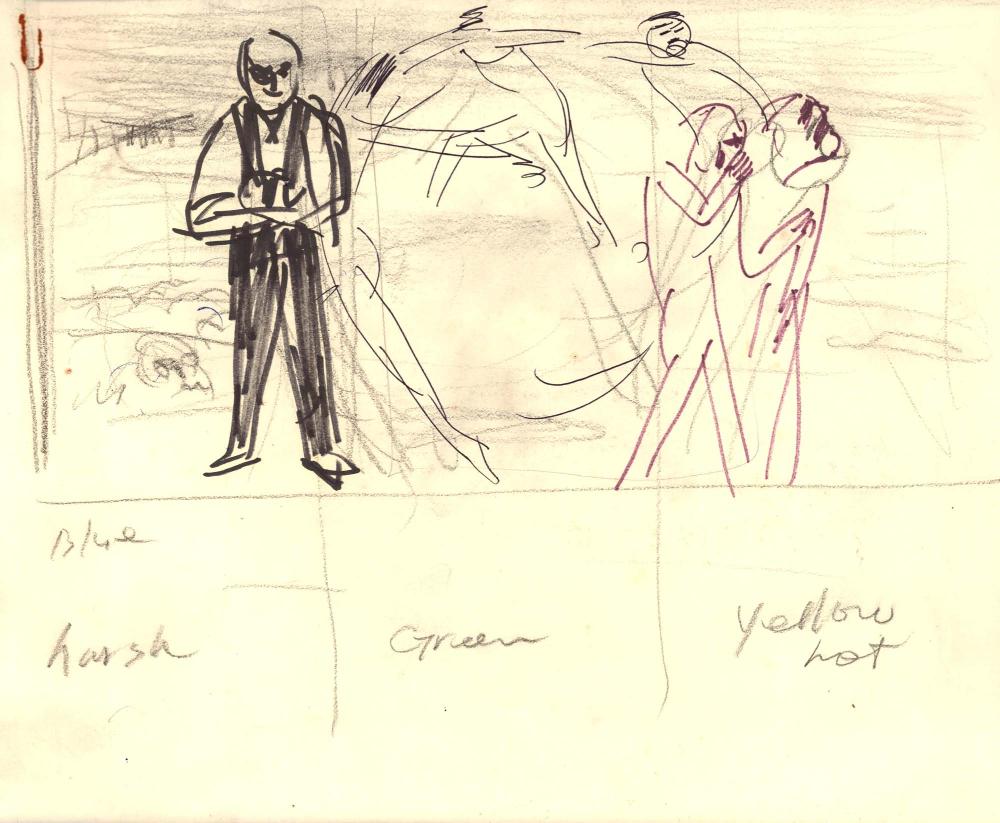 Blue
harsh
Green
Yellow
hot